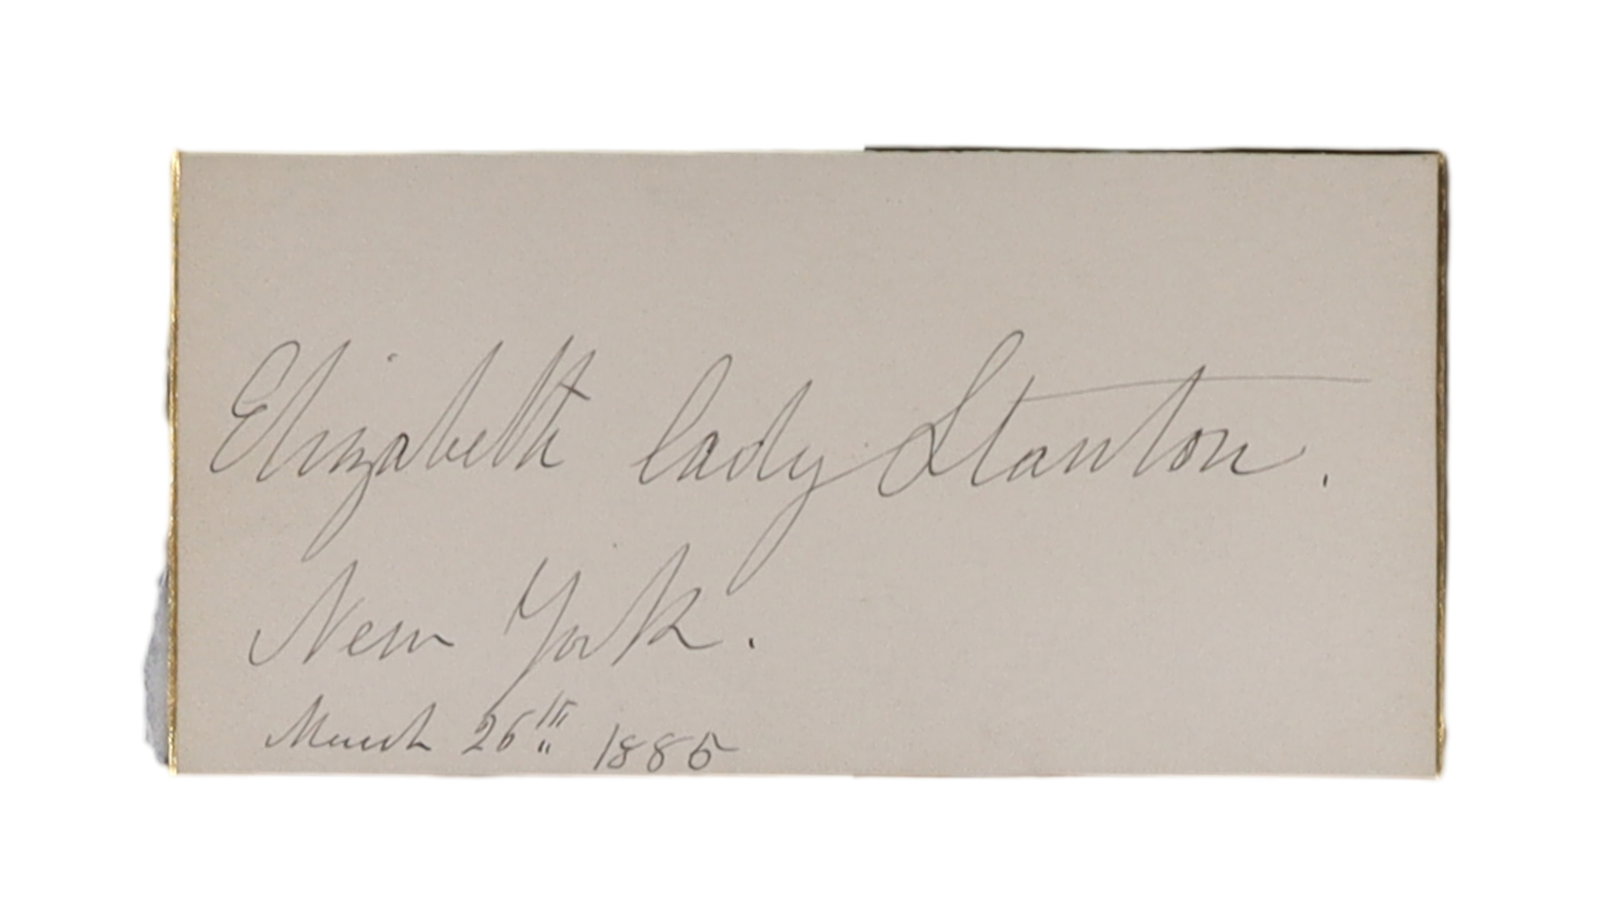 Elizabeth Cady Stanton.
New York.
March 26th 1885